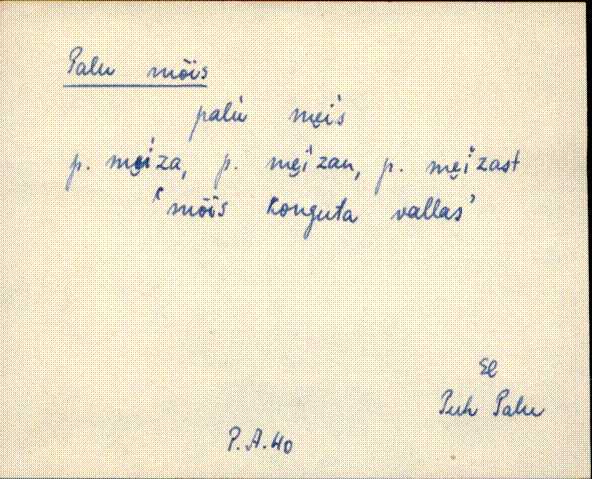 Palu mõis
palù mẹi̇̀s
p. mẹi̇̀za, p. mẹi̇̀zan, p. mẹi̇̀zast
'mõis Konguta vallas'
El
Puh Palu
P.A.40